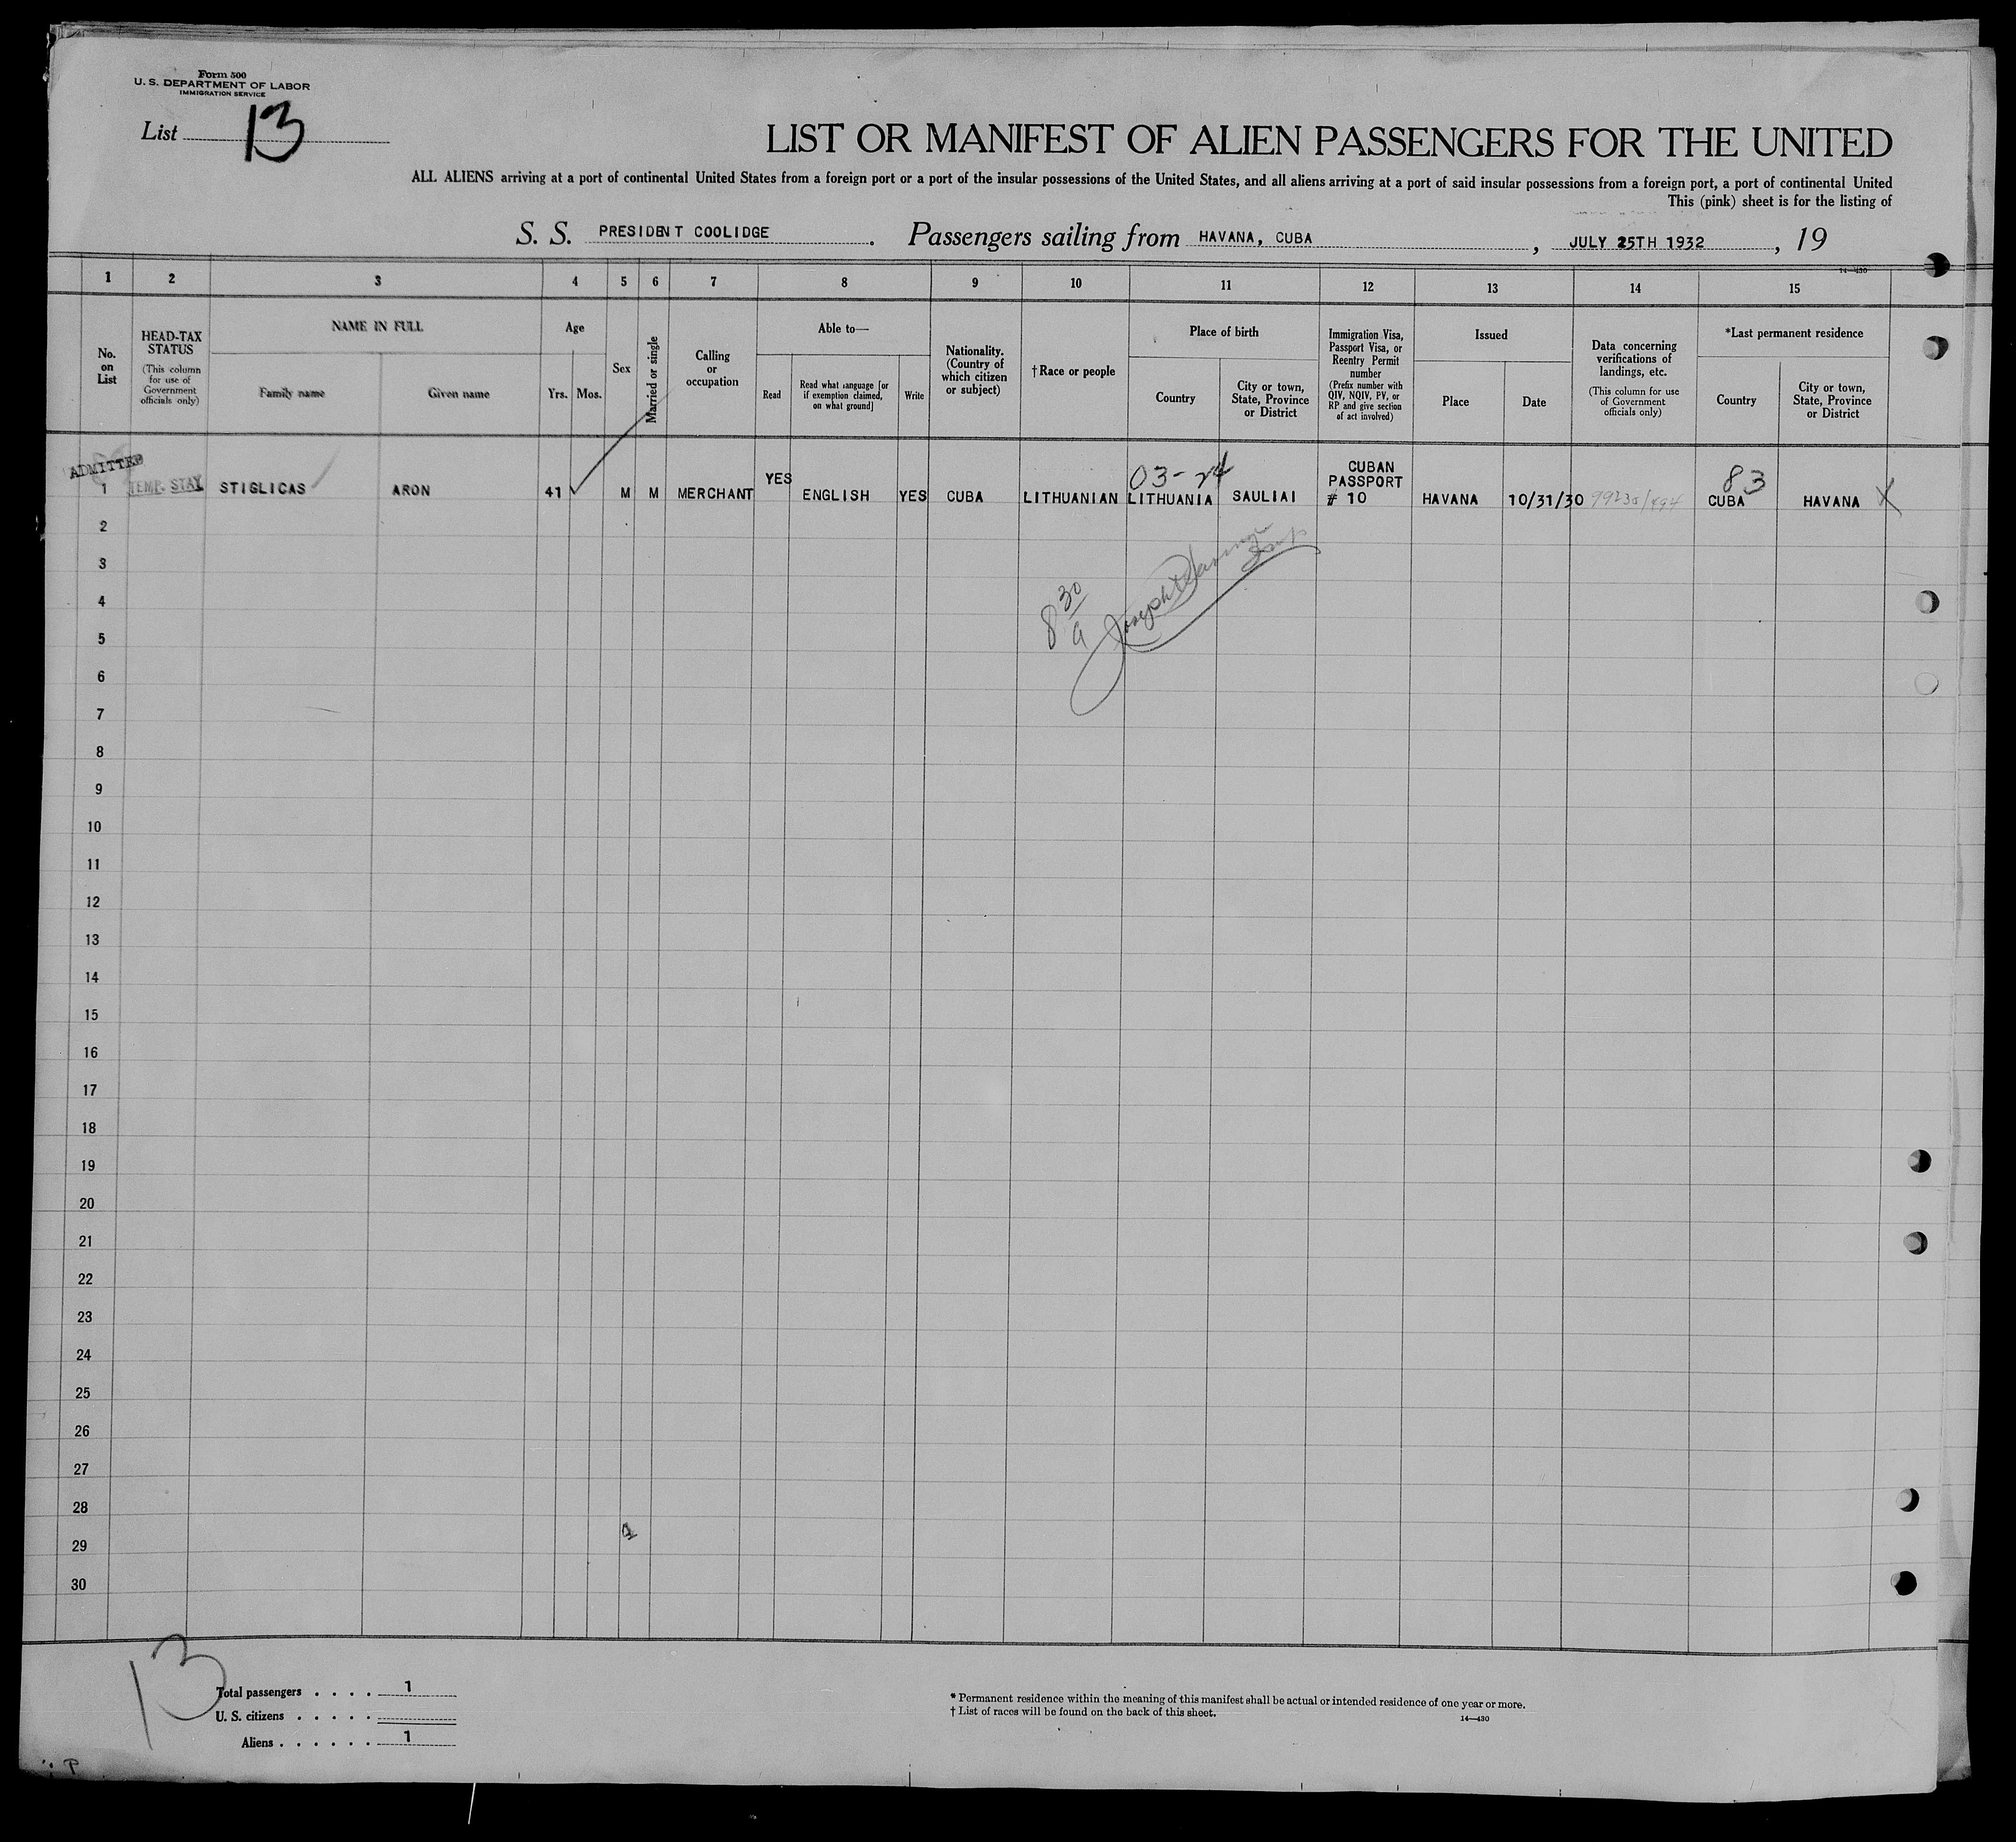 Form 500
U. S. DEPARTMENT OF LABOR
IMMIGRATION SERVICE
List 13
LIST OR MANIFEST OF ALIEN PASSENGERS FOR THE UNITED
ALL ALIENS arriving at a port of continental United States from a foreign port or a port of the insular possessions of the United States, and all aliens arriving at a port of said insular possessions from a foreign port, a port of continental United
This (pink) sheet is for the listing of
S. S. PRESIDENT COOLIDGE. Passengers sailing from HAVANA, CUBA, JULY 25TH 1932, 19
14—430
1 2 3 4 5 6 7 8 9 10 11 12 13 14 15
No. on List
HEAD-TAX STATUS
(This column for use of Government officials only)
NAME IN FULL
Family name
Given name
Age
Yrs. Mos.
Sex
Married or single
Calling or occupation
Able to—
Read
Read what language [or if exemption claimed, on what ground]
Write
Nationality. (Country of which citizen or subject)
†Race or people
Place of birth
Country
City or town, State, Province or District
Immigration Visa, Passport Visa, or Reentry Permit number
(Prefix number with QIV, NQIV, PV, or RP and give section of act involved)
Issued
Place
Date
Data concerning verifications of landings, etc.
(This column for use of Government officials only)
*Last permanent residence
Country
City or town, State, Province or District
ADMITTED
03-24
83
1 TEMP. STAY STIGLICAS ARON 41 M M MERCHANT YES ENGLISH YES CUBA LITHUANIAN LITHUANIA SAULIAI CUBAN PASSPORT # 10 HAVANA 10/31/30 CUBA HAVANA X
2
3
4
8 30/a Joseph
5
6
7
8
9
10
11
12
13
14
15
16
17
18
19
20
21
22
23
24
25
26
27
28
29
30
13
Total passengers . . . . 1
U. S. citizens . . . . .
Aliens . . . . . . 1
* Permanent residence within the meaning of this manifest shall be actual or intended residence of one year or more.
† List of races will be found on the back of this sheet.
14—430